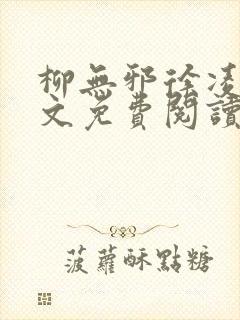 柳無邪徐凌
文免費閱讀
菠蘿酥點糖